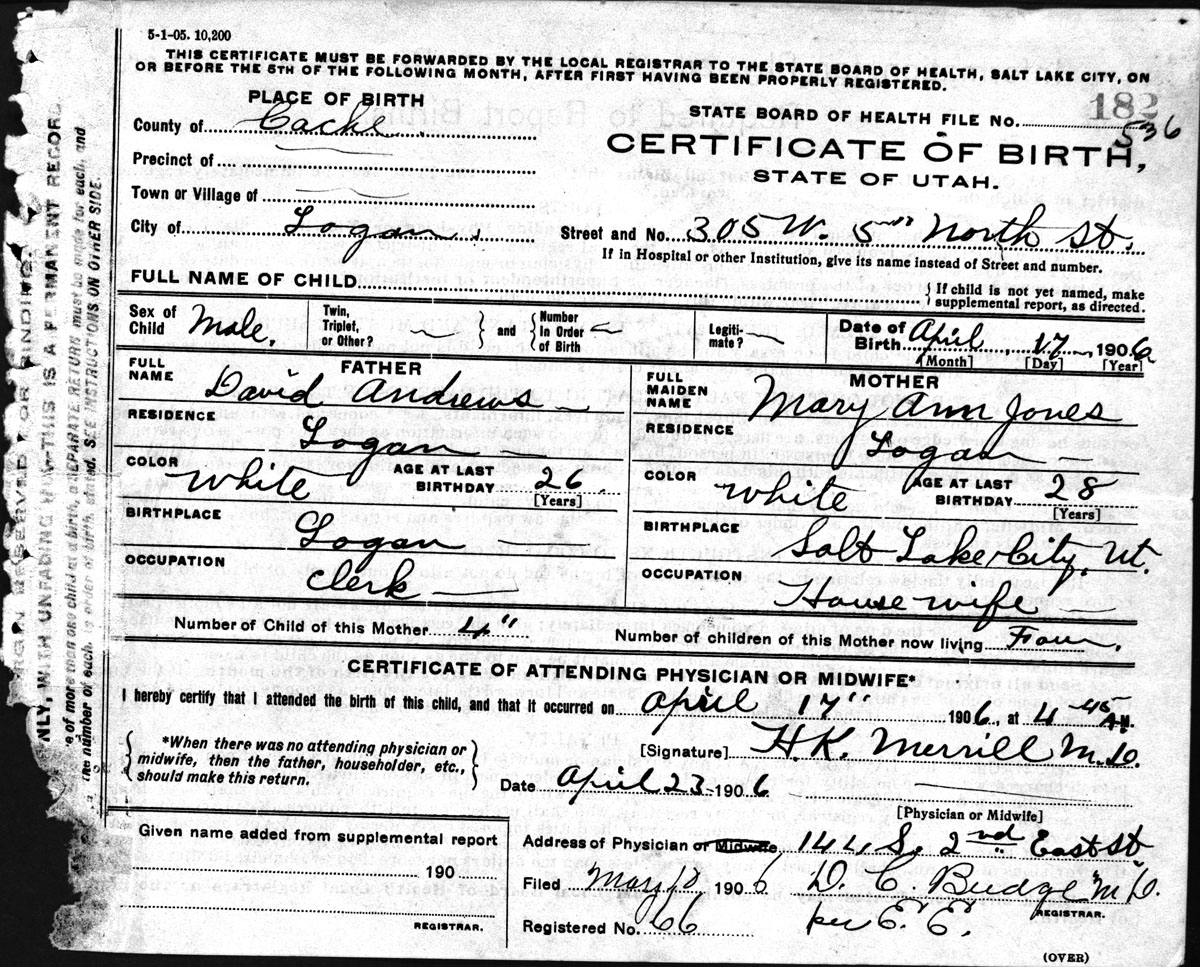 5-1-05. 10,200
THIS CERTIFICATE MUST BE FORWARDED BY THE LOCAL REGISTRAR TO THE STATE BOARD OF HEALTH, SALT LAKE CITY, ON
OR BEFORE THE 5TH OF THE FOLLOWING MONTH, AFTER FIRST HAVING BEEN PROPERLY REGISTERED.
182
PLACE OF BIRTH
STATE BOARD OF HEALTH FILE NO. 536
County of Cache
CERTIFICATE OF BIRTH,
Precinct of
STATE OF UTAH.
Town or Village of
City of Logan
Street and No. 305 W. 5th North St.
If in Hospital or other Institution, give its name instead of Street and number.
FULL NAME OF CHILD
{ If child is not yet named, make
supplemental report, as directed.
Sex of Child Male. Twin, Triplet, or Other? } and { Number in Order of Birth Legiti-mate? Date of Birth April 17 1906
[Month] [Day] [Year]
FATHER
FULL NAME David Andrews
RESIDENCE
Logan
COLOR White AGE AT LAST BIRTHDAY 26
[Years]
BIRTHPLACE
Logan
OCCUPATION
Clerk
MOTHER
FULL MAIDEN NAME Mary Ann Jones
RESIDENCE
Logan
COLOR White AGE AT LAST BIRTHDAY 28
[Years]
BIRTHPLACE
Salt Lake City, Ut.
OCCUPATION
House wife
Number of Child of this Mother 4"
Number of children of this Mother now living Four.
CERTIFICATE OF ATTENDING PHYSICIAN OR MIDWIFE*
I hereby certify that I attended the birth of this child, and that it occurred on April 17" 1906, at 4 45 A.M.
{ *When there was no attending physician or
midwife, then the father, householder, etc.,
should make this return. }
[Signature] H.K. Merrill M.D.
Date April 23 1906
[Physician or Midwife]
Given name added from supplemental report
190
REGISTRAR.
Address of Physician or Midwife S. 2nd East St
Filed May 8, 1906 D. C. Budge M.D.
REGISTRAR.
Registered No. 66 per E. E.
(OVER)
MARGIN RESERVED FOR BINDING
NLY, WITH UNFADING INK—THIS IS A PERMANENT RECORD
e of more than one child at a birth, a SEPARATE RETURN must be made for each, and
the number of each, in order of birth, stated. SEE INSTRUCTIONS ON OTHER SIDE.